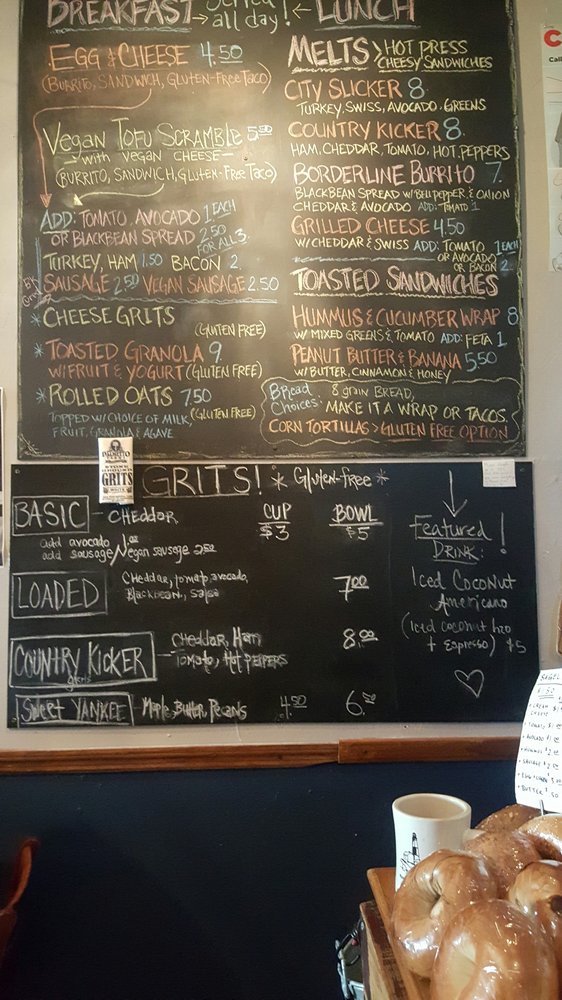 BREAKFAST → Served all day! ← LUNCH
EGG & CHEESE 4.50
(BURRITO, SANDWICH, GLUTEN-FREE TACO)
VEGAN TOFU SCRAMBLE 5.50
- WITH VEGAN CHEESE -
(BURRITO, SANDWICH, GLUTEN-FREE TACO)
ADD: TOMATO, AVOCADO 1 EACH
OR BLACKBEAN SPREAD 2.50 FOR ALL 3.
TURKEY, HAM 1.50 BACON 2.
SAUSAGE 2.50 VEGAN SAUSAGE 2.50
* CHEESE GRITS
(GLUTEN FREE)
* TOASTED GRANOLA 9
W/FRUIT & YOGURT (GLUTEN FREE)
* ROLLED OATS 7.50
(GLUTEN FREE)
TOPPED W/CHOICE OF MILK,
FRUIT, GRANOLA & AGAVE
MELTS > HOT PRESS
CHEESY SANDWICHES
CITY SLICKER 8
TURKEY, SWISS, AVOCADO, GREENS
COUNTRY KICKER 8.
HAM, CHEDDAR, TOMATO, HOT PEPPERS
BORDERLINE BURRITO 7.
BLACKBEAN SPREAD W/ BELL PEPPER & ONION
CHEDDAR & AVOCADO ADD: TOMATO 1
GRILLED CHEESE 4.50
W/ CHEDDAR & SWISS ADD: TOMATO 1 EACH
OR AVOCADO
OR BACON 2
TOASTED SANDWICHES
HUMMUS & CUCUMBER WRAP 8
W/ MIXED GREENS & TOMATO ADD: FETA 1
PEANUT BUTTER & BANANA 5.50
W/ BUTTER, CINNAMON & HONEY
Bread Choices: 8 grain BREAD,
MAKE IT A WRAP OR TACOS.
CORN TORTILLAS > GLUTEN FREE OPTION
PALMETTO
GRITS
GRITS! * Gluten-free *
BASIC - CHEDDAR CUP $3 BOWL $5
add avocado 1.00
add sausage/Vegan sausage 2.50
LOADED Cheddar, tomato, avocado,
Blackbean, Salsa 7.00
COUNTRY KICKER grits - CHEDDAR, HAM
TOMATO, HOT PEPPERS 8.00
SWEET YANKEE Maple, Butter, Pecans 4.50 6.50
Featured
DRINK: !
Iced Coconut
Americano
(Iced coconut h2o
+ Espresso) $5
BAGEL
1.50
• CREAM CHEESE $1
• TOMATO $1.00
• AVOCADO $1.00
• HUMMUS $2.00
• SAUSAGE $2.00
• BUTTER .50